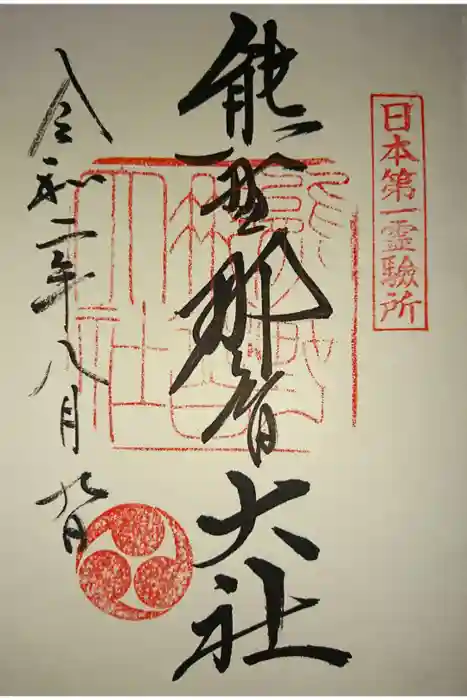 日本第一霊驗所
熊野那智大社
令和二年八月九日